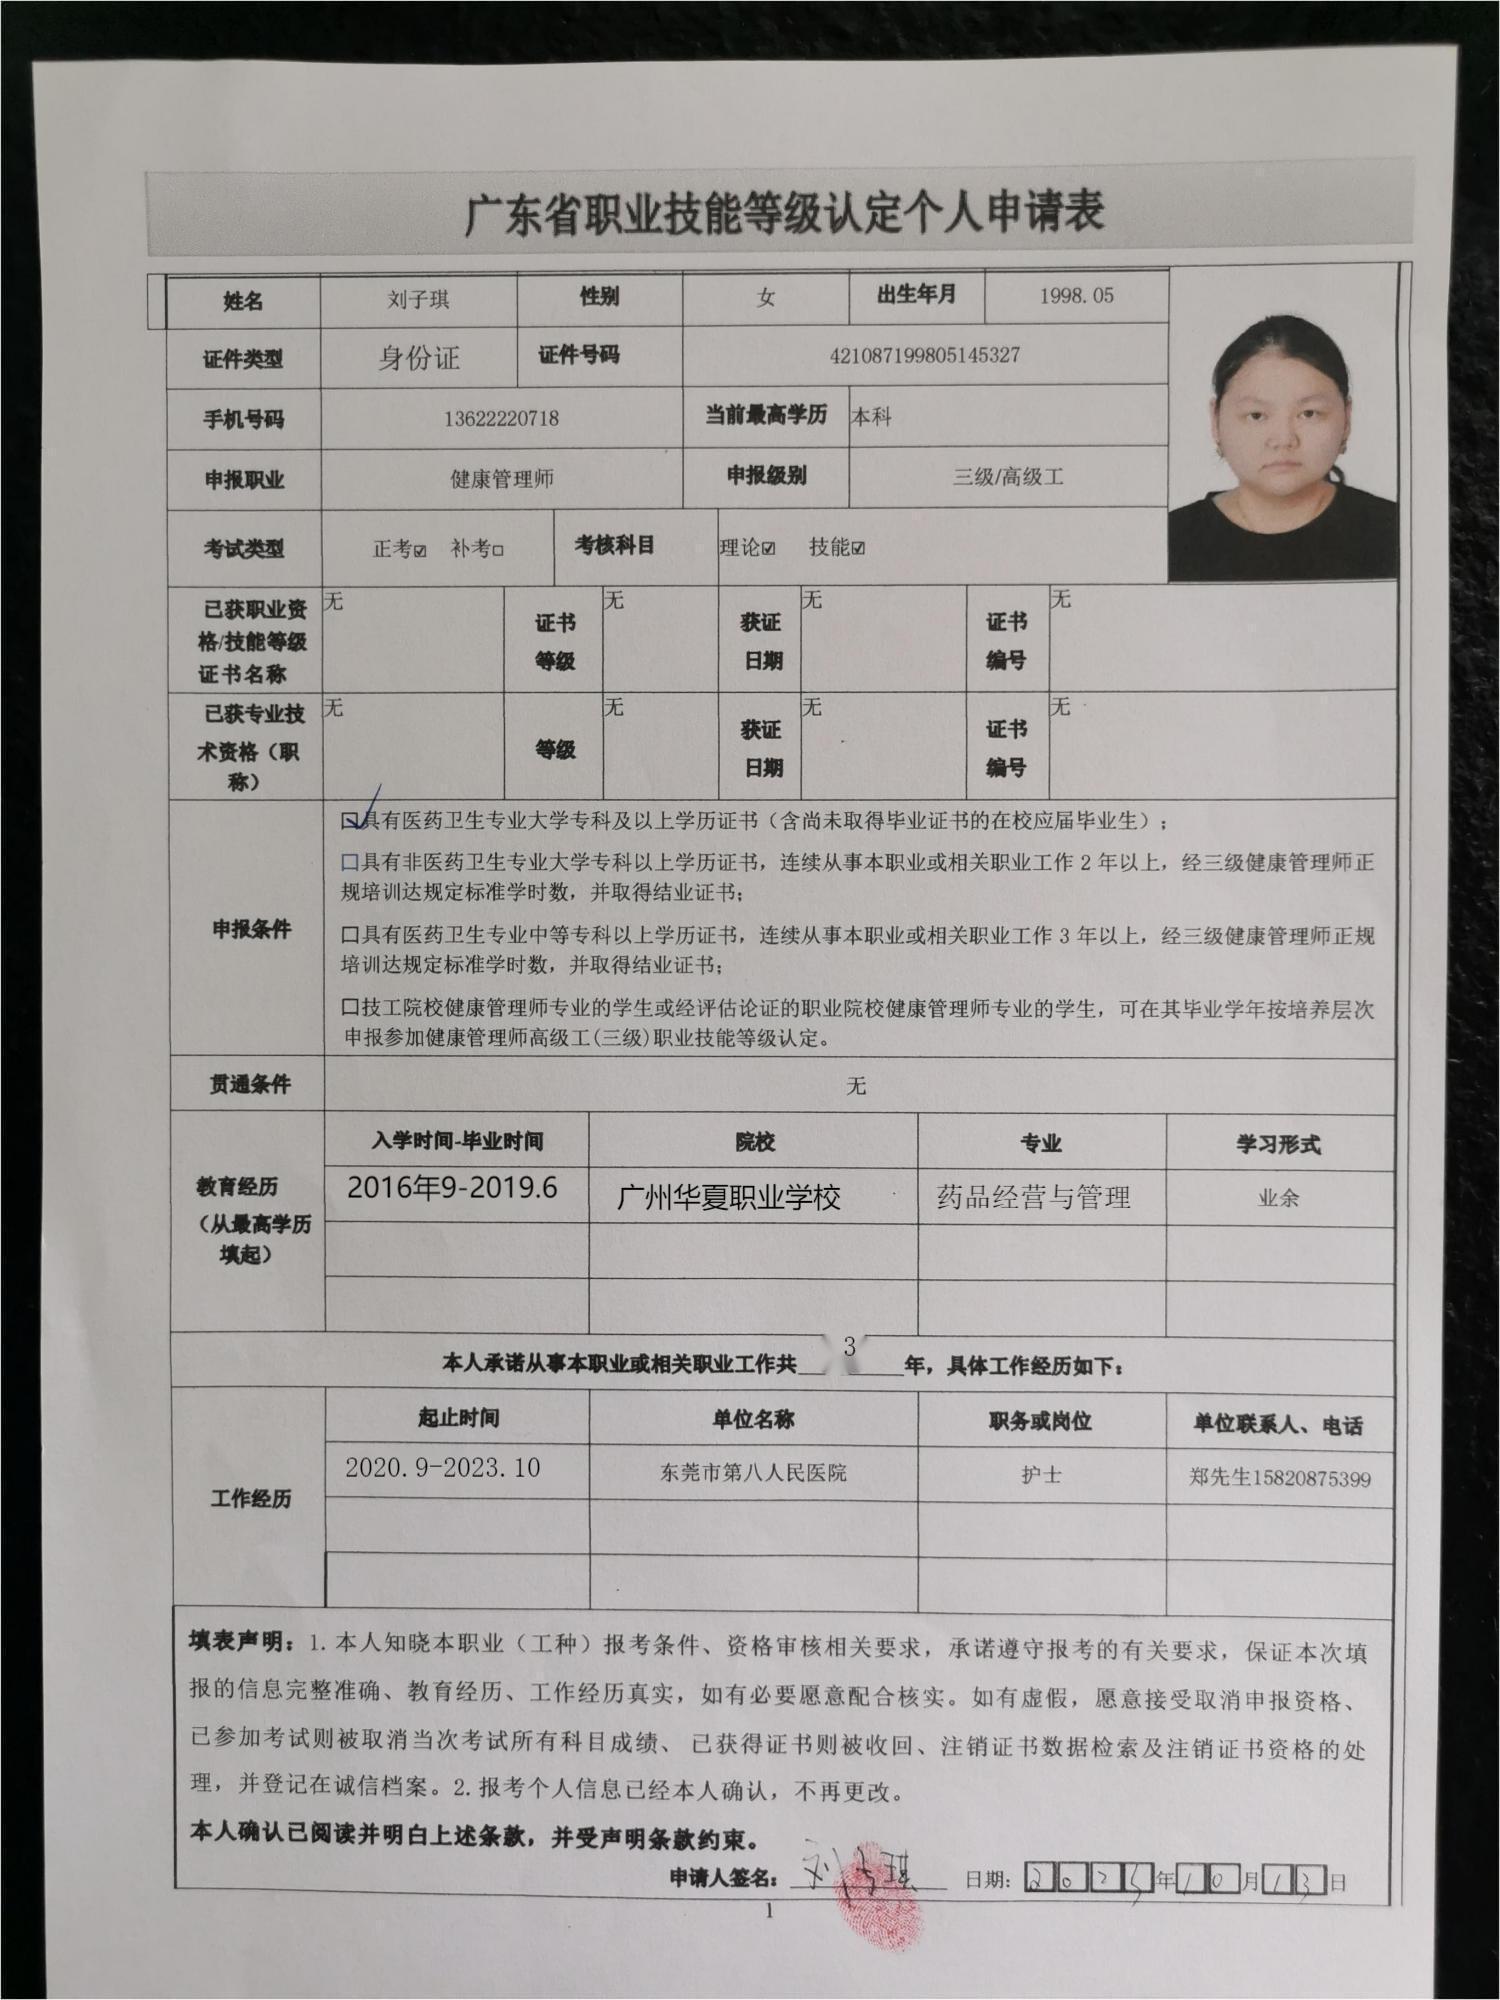 广东省职业技能等级认定个人申请表
姓名 刘子琪 性别 女 出生年月 1998.05
证件类型 身份证 证件号码 421087199805145327
手机号码 13622220718 当前最高学历 本科
申报职业 健康管理师 申报级别 三级/高级工
考试类型 正考☑ 补考□ 考核科目 理论☑ 技能☑
已获职业资格/技能等级证书名称 无 证书等级 无 获证日期 无 证书编号 无
已获专业技术资格（职称） 无 等级 无 获证日期 无 证书编号 无
申报条件
☑具有医药卫生专业大学专科及以上学历证书（含尚未取得毕业证书的在校应届毕业生）；
□具有非医药卫生专业大学专科以上学历证书，连续从事本职业或相关职业工作 2 年以上，经三级健康管理师正
规培训达规定标准学时数，并取得结业证书；
□具有医药卫生专业中等专科以上学历证书，连续从事本职业或相关职业工作 3 年以上，经三级健康管理师正规
培训达规定标准学时数，并取得结业证书；
□技工院校健康管理师专业的学生或经评估论证的职业院校健康管理师专业的学生，可在其毕业学年按培养层次
申报参加健康管理师高级工(三级)职业技能等级认定。
贯通条件 无
教育经历（从最高学历填起）
入学时间-毕业时间 院校 专业 学习形式
2016年9-2019.6 广州华夏职业学校 药品经营与管理 业余
本人承诺从事本职业或相关职业工作共 3 年，具体工作经历如下：
工作经历
起止时间 单位名称 职务或岗位 单位联系人、电话
2020.9-2023.10 东莞市第八人民医院 护士 郑先生15820875399
填表声明：1. 本人知晓本职业（工种）报考条件、资格审核相关要求，承诺遵守报考的有关要求，保证本次填
报的信息完整准确、教育经历、工作经历真实，如有必要愿意配合核实。如有虚假，愿意接受取消申报资格、
已参加考试则被取消当次考试所有科目成绩、 已获得证书则被收回、注销证书数据检索及注销证书资格的处
理，并登记在诚信档案。2. 报考个人信息已经本人确认，不再更改。
本人确认已阅读并明白上述条款，并受声明条款约束。
申请人签名：刘子琪 日期：2025年10月13日
1